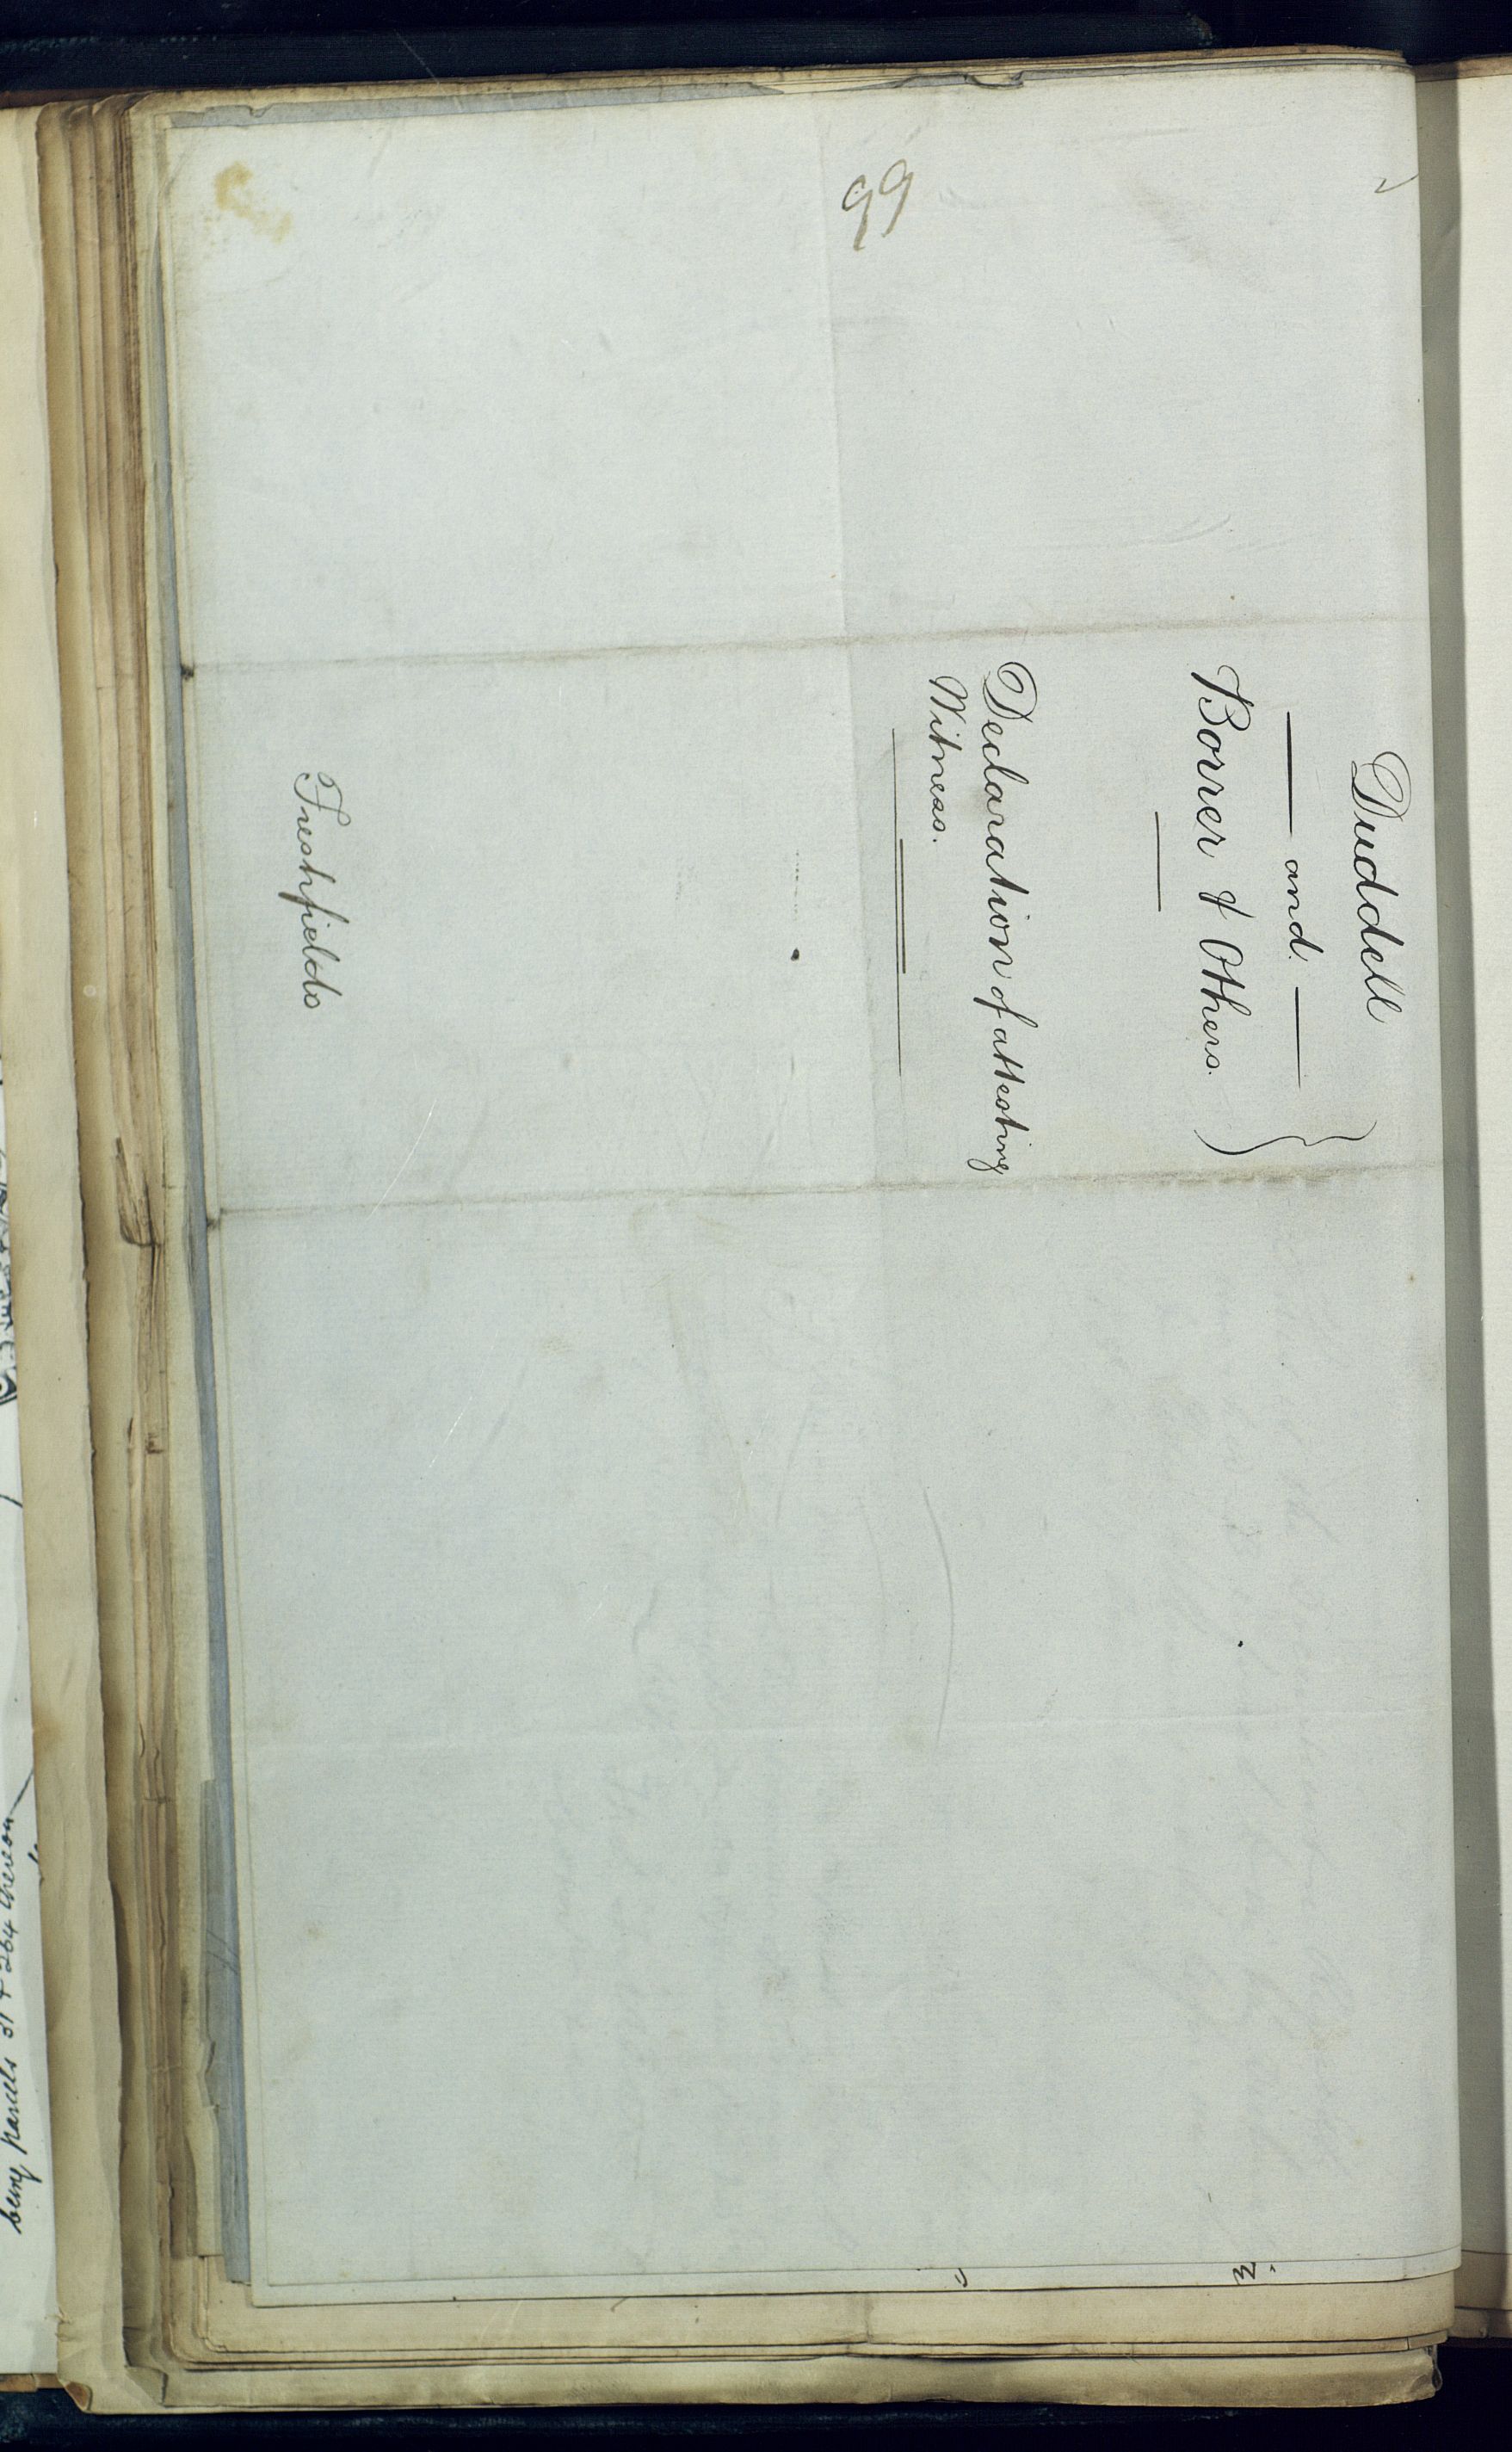 99
Duddell
and
Borrer & Others.
Declaration of attesting
Witness.
Freshfields
being parcels 31 & 264 thereon